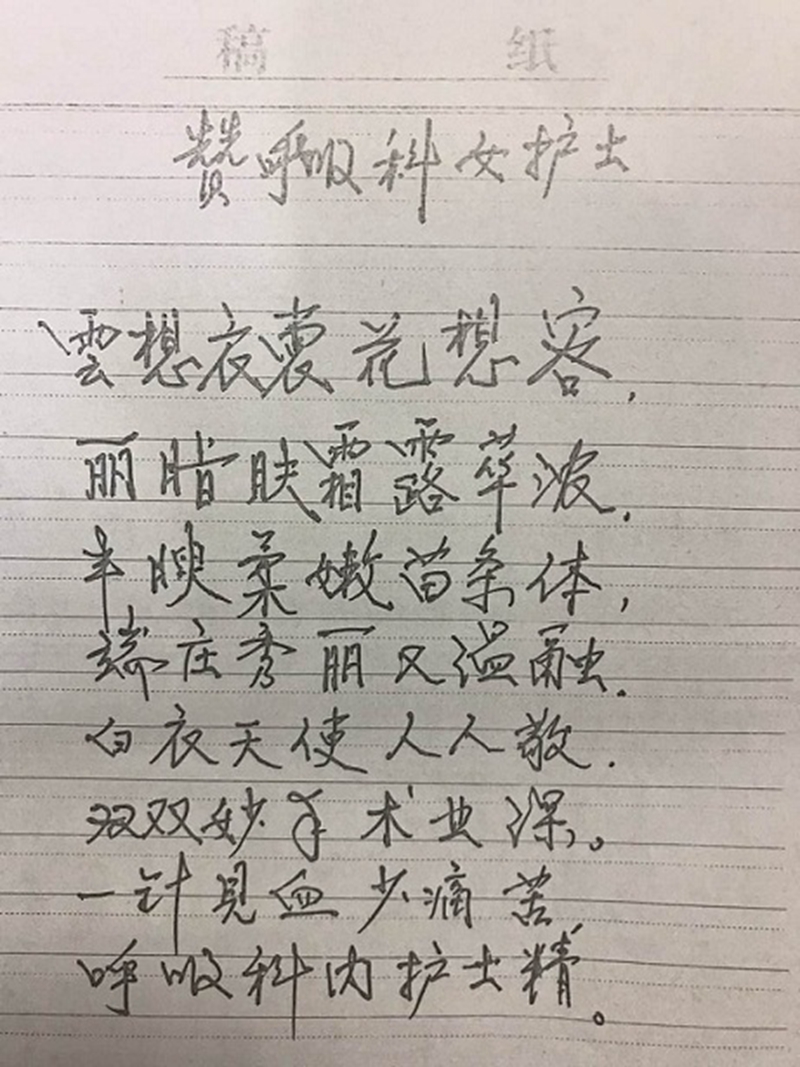 稿 纸
赞呼吸科女护士
雲想衣裳花想容,
丽肤霜露华浓.
丰腴柔嫩苗条体,
端庄秀丽又温融.
白衣天使人人敬.
双双妙手术业深。
一针見血少痛苦,
呼吸科内护士精。